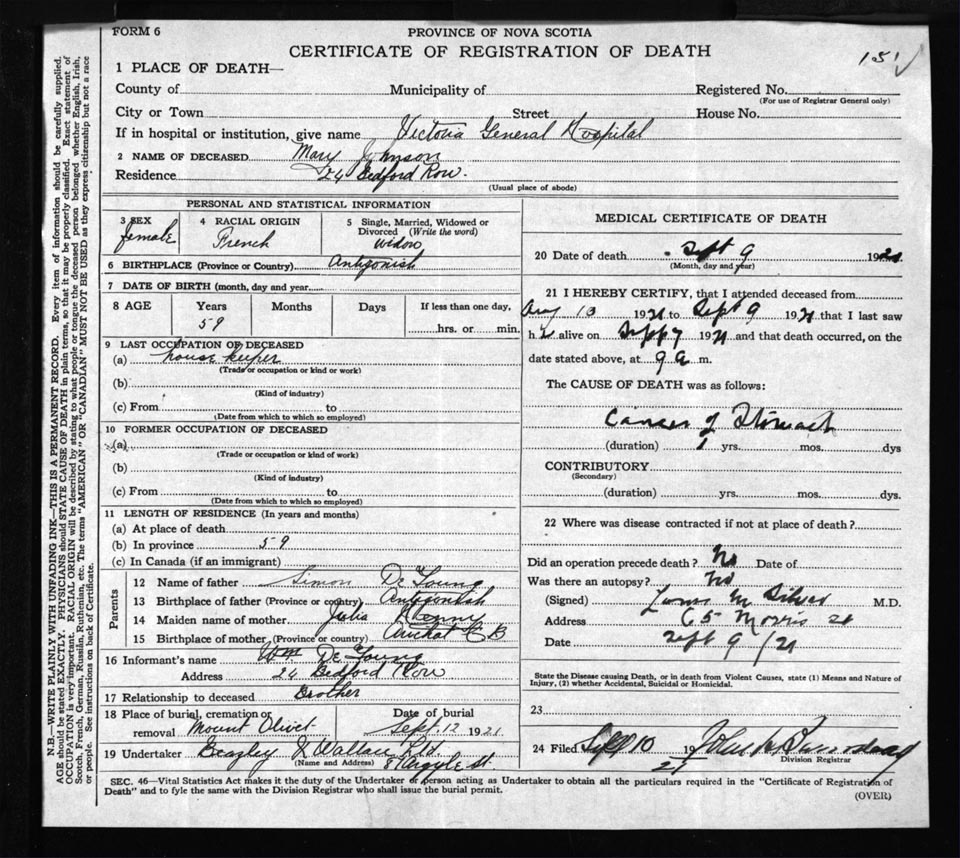 FORM 6
PROVINCE OF NOVA SCOTIA
CERTIFICATE OF REGISTRATION OF DEATH
151
1 PLACE OF DEATH—
County of Municipality of Registered No.
(For use of Registrar General only)
City or Town Street House No.
If in hospital or institution, give name Victoria General Hospital
2 NAME OF DECEASED Mary Johnson
Residence 24 Bedford Row.
(Usual place of abode)
PERSONAL AND STATISTICAL INFORMATION
3 SEX 4 RACIAL ORIGIN 5 Single, Married, Widowed or
Divorced (Write the word)
female French widow
6 BIRTHPLACE (Province or Country) Antigonish
7 DATE OF BIRTH (month, day and year)
8 AGE Years Months Days If less than one day,
59 hrs. or min.
9 LAST OCCUPATION OF DECEASED
(a) house keeper
(Trade or occupation or kind or work)
(b)
(Kind of industry)
(c) From to
(Date from which to which so employed)
10 FORMER OCCUPATION OF DECEASED
(a)
(Trade or occupation or kind of work)
(b)
(Kind of industry)
(c) From to
(Date from which to which so employed)
11 LENGTH OF RESIDENCE (In years and months)
(a) At place of death
(b) In province 59
(c) In Canada (if an immigrant)
Parents
12 Name of father Simon De Young
13 Birthplace of father (Province or country) Antigonish
14 Maiden name of mother Julia
15 Birthplace of mother (Province or country) Arichat C B
16 Informant's name Wm De Young
Address 24 Bedford Row
17 Relationship to deceased Brother
18 Place of burial, cremation or Date of burial
removal Mount Olivet Sept. 12 1921
19 Undertaker Beazley & Wallace Ltd.
(Name and Address) 8 Argyle St.
MEDICAL CERTIFICATE OF DEATH
20 Date of death Sept 9 1921
(Month, day and year)
21 I HEREBY CERTIFY, that I attended deceased from
Aug 13 1921 to Sept 9 1921 that I last saw
h er alive on Sept 7 1921 and that death occurred, on the
date stated above, at 9 a m.
The CAUSE OF DEATH was as follows:
Cancer of Stomach
(duration) 1 yrs. mos. dys
CONTRIBUTORY
(Secondary)
(duration) yrs. mos. dys.
22 Where was disease contracted if not at place of death?
Did an operation precede death? No Date of
Was there an autopsy? No
(Signed) Louis M Silver M.D.
Address 65 Morris St
Date Sept 9/21
State the Disease causing Death, or in death from Violent Causes, state (1) Means and Nature of
Injury, (2) whether Accidental, Suicidal or Homicidal.
23
24 Filed Sept 10 19 21
Division Registrar
SEC. 46—Vital Statistics Act makes it the duty of the Undertaker or person acting as Undertaker to obtain all the particulars required in the "Certificate of Registration of
Death" and to fyle the same with the Division Registrar who shall issue the burial permit.
(OVER)
N.B.—WRITE PLAINLY WITH UNFADING INK—THIS IS A PERMANENT RECORD. Every item of information should be carefully supplied.
AGE should be stated EXACTLY. PHYSICIANS should STATE CAUSE OF DEATH in plain terms, so that it may be properly classified. Exact statement of
OCCUPATION is very important. RACIAL ORIGIN will be described by stating to what people or tongue the deceased person belonged whether English, Irish,
Scotch, French, German, Russian, Ruthenian, etc. The terms "AMERICAN" OR "CANADIAN" MUST NOT BE USED as they express citizenship but not a race
or people. See instructions on back of Certificate.